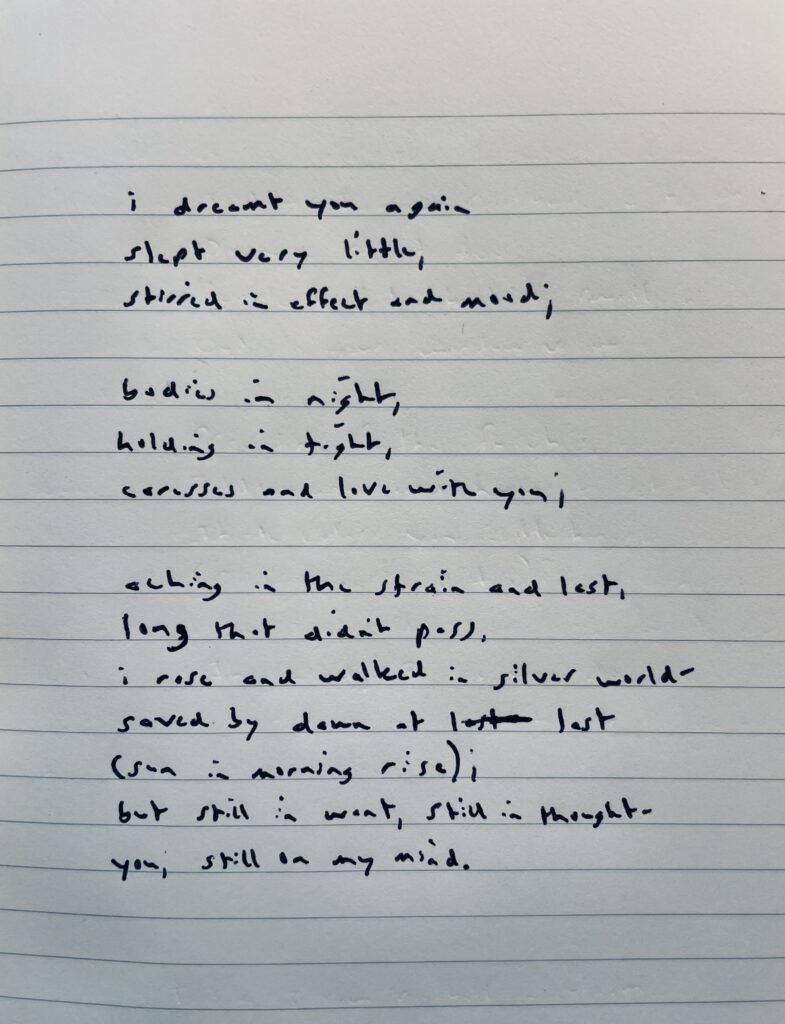 i dreamt you again
slept very little,
stirred in effect and mood;
bodies in night,
holding in tight,
caresses and love with you;
aching in the strain and last,
long that didn't pass,
i rose and walked in silver world-
saved by dawn at last last
(sun in morning rise);
but still in want, still in thought-
you, still on my mind.